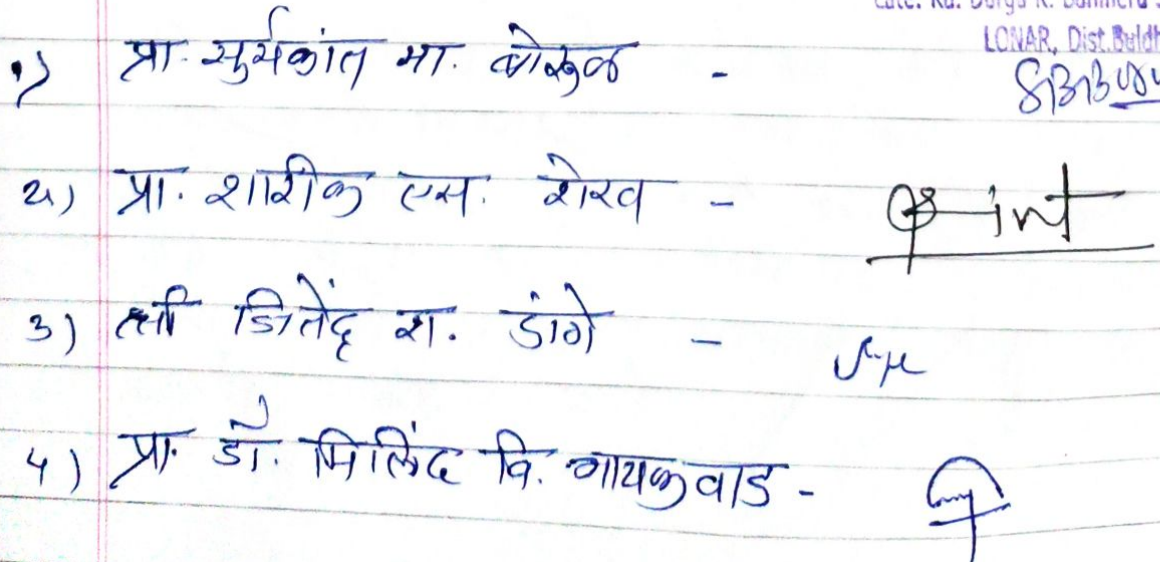 LONAR, Dist.Buldh
१) प्रा. सुर्यकांत मा. बोरकुळ -
२) प्रा. शारीक एस. शेख -
3) श्री जितेंद्र श. डांगे -
4) प्रा. डॉ. मिलिंद वि. गायकवाड -